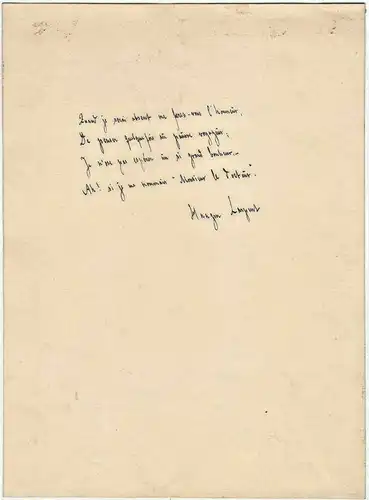 Quand je serai absent me ferez-vous l'honneur,
De penser quelquefois au pauvre voyageur;
Je n'ose pas espérer un si grand bonheur.
Ah! si je me nommais "Monsieur le Docteur".